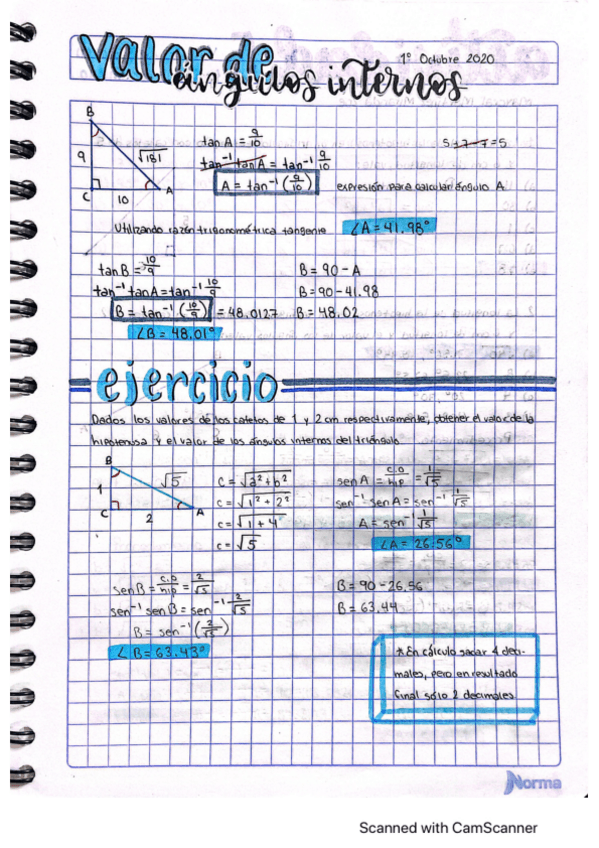 Valor de
1° Octubre 2020
ángulos internos
B
9
√181
C
10
A
tan A = 9/10
tan⁻¹ tan A = tan⁻¹ 9/10
A = tan⁻¹ (9/10)
expresión para calcular ángulo A
5+7-7=5
Utilizando razón trigonométrica tangente
∠A = 41.98°
tan B = 10/9
tan⁻¹ tan A = tan⁻¹ 10/9
B = tan⁻¹ (10/9) = 48.0127
∠B = 48.01°
B = 90 - A
B = 90 - 41.98
B = 48.02
ejercicio
Dados los valores de los catetos de 1 y 2 cm respectivamente, obtener el valor de la
hipotenusa y el valor de los ángulos internos del triángulo
B
1
√5
C
2
A
c = √a² + b²
c = √1² + 2²
c = √1 + 4
c = √5
sen A = c.o/hip = 1/√5
sen⁻¹ sen A = sen⁻¹ 1/√5
A = sen⁻¹ 1/√5
∠A = 26.56°
sen B = c.o/hip = 2/√5
sen⁻¹ sen B = sen⁻¹ 2/√5
B = sen⁻¹ (2/√5)
∠B = 63.43°
B = 90 - 26.56
B = 63.44
*En cálculo sacar 4 deci-
males, pero en resultado
final sólo 2 decimales
Norma
Scanned with CamScanner